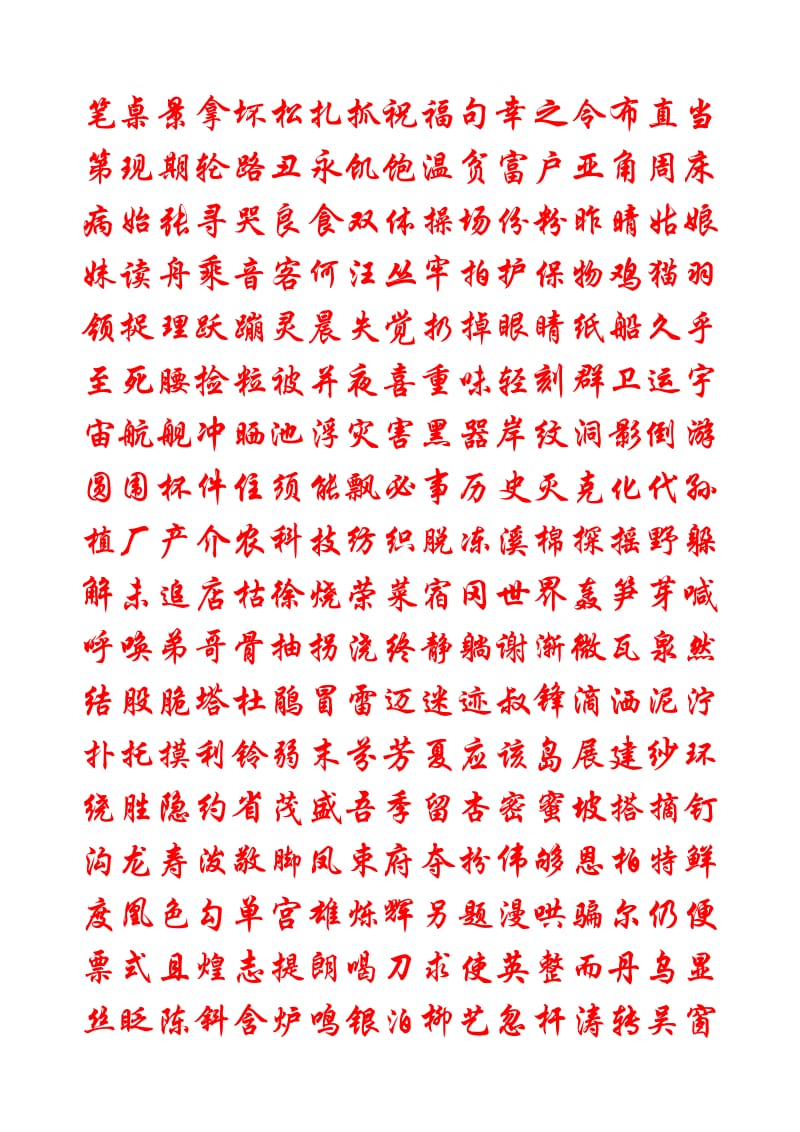 笔桌景拿坏松扎抓祝福句幸之令布直当
第现期轮路丑永饥饱温贫富户亚角周床
病始张寻哭良食双体操场份粉昨晴姑娘
妹读舟乘音客何汪丛牢拍护保物鸡猫羽
领捉理跃蹦灵晨失觉扔掉眼睛纸船久乎
至死腰捡粒被并夜喜重味轻刻群卫运宇
宙航舰冲晒池浮灾害黑器岸纹洞影倒游
圆围杯件住须能飘必事历史灭克化代孙
植厂产介农科技纺织脱冻溪棉探摇野躲
解未追店枯徐烧荣菜宿冈世界轰笋芽喊
呼唤弟哥骨抽拐浇终静躺谢渐微瓦泉然
结股脆塔杜鹃冒雷迈迷迹叔锋滴洒泥泞
扑托摸利铃弱末芬芳夏应该岛展建纱环
绕胜隐约省茂盛吾季留杏密蜜坡搭摘钉
沟龙寿泼敬脚凤束府夺扮伟够恩柏特鲜
度凰色勾单宫雄烁辉另题漫哄骗尔仍便
票式且煌志提朗喝刀求使英整而丹乌显
丝眨陈斜含炉鸣银泊柳艺忽杆涛转吴窗